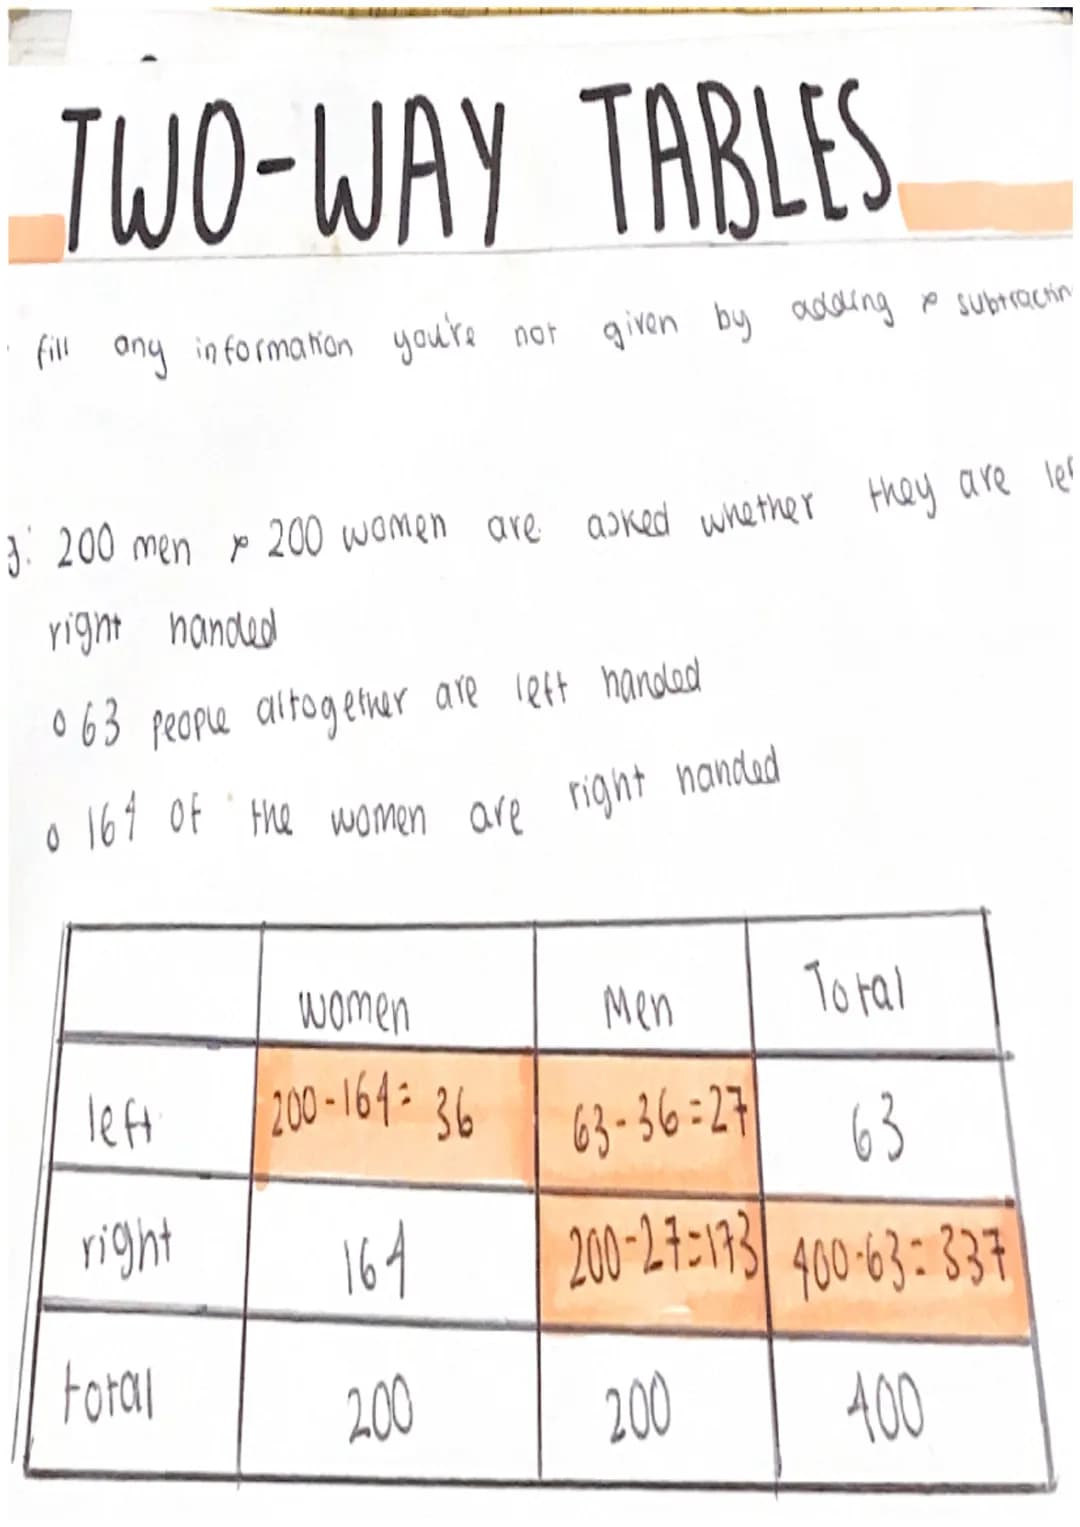 TWO-WAY TABLES
fill any information you're not given by adding & subtractin
g: 200 men & 200 women are asked whether they are lef
right handed
o 63 people altogether are left handed
o 164 of the women are right handed
women Men Total
left 200-164= 36 63-36=27 63
right 164 200-27=173 400-63=337
total 200 200 400